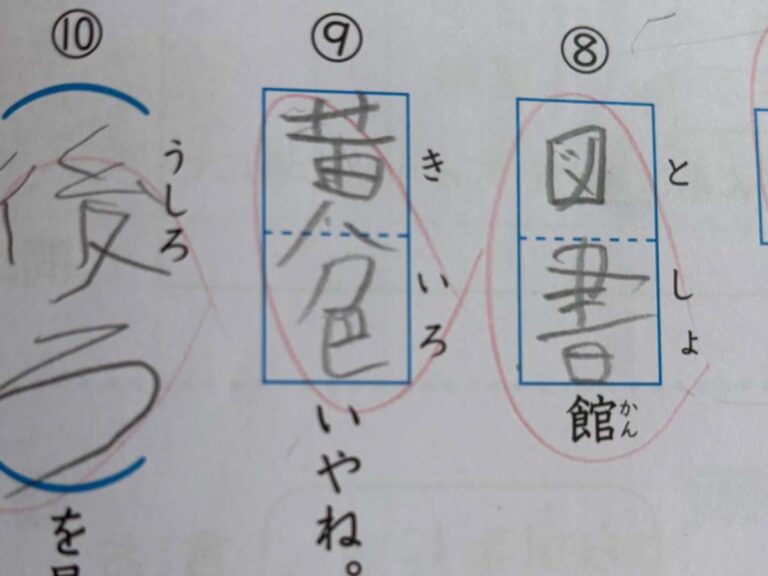 ⑧
図書館
としょ
かん
⑨
黄色いやね。
きいろ
⑩
後ろを
うしろ